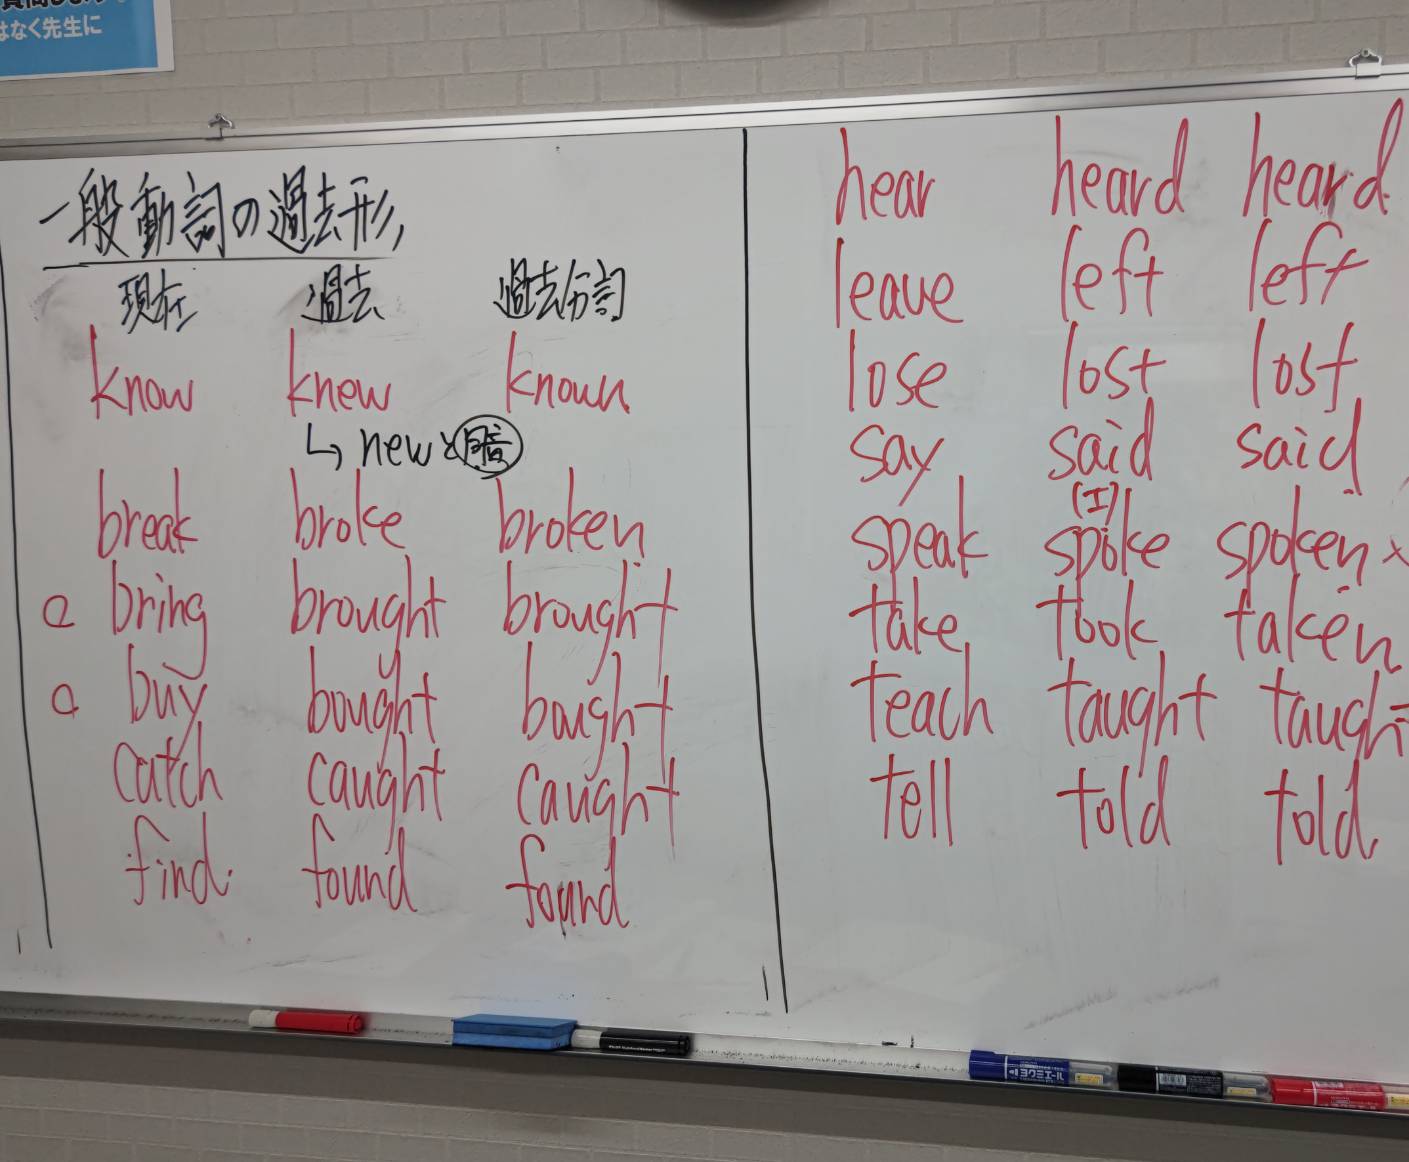 はなく先生に
一般動詞の過去形
現在 過去 過去分詞
know knew known
↳ newと同音
break broke broken
bring brought brought
buy bought bought
catch caught caught
find found found
hear heard heard
leave left left
lose lost lost
say said said
(エ)
speak spoke spoken
take took taken
teach taught taught
tell told told
ヨクミエール